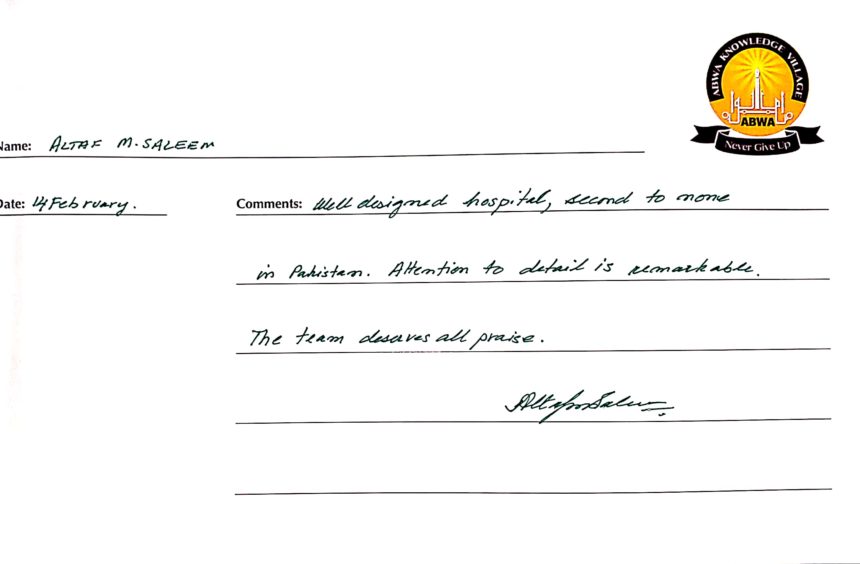 ABWA KNOWLEDGE VILLAGE
ABWA
Never Give Up
Name: ALTAF M. SALEEM
Date: 14 February.
Comments: Well designed hospital, second to none
in Pakistan. Attention to detail is remarkable.
The team deserves all praise.